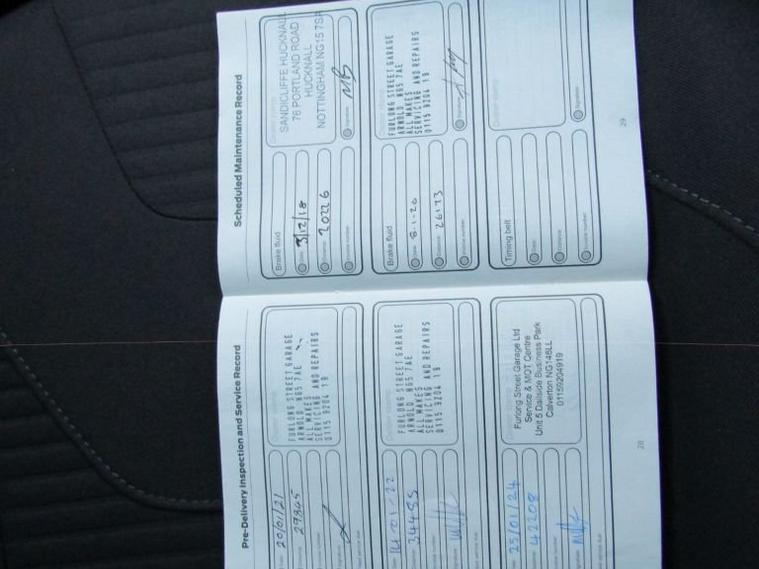 Pre-Delivery Inspection and Service Record
20/01/21
29305
FURLONG STREET GARAGE
ARNOLD NG5 7AE
ALL MAKES
SERVICING AND REPAIRS
0115 9204 19
14/01/22
34485
FURLONG STREET GARAGE
ARNOLD NG5 7AE
ALL MAKES
SERVICING AND REPAIRS
0115 9204 19
25/01/24
42208
Furlong Street Garage Ltd
Service & MOT Centre
Unit 5 Dallside Business Park
Calverton NG146LL
01159204919
28
Scheduled Maintenance Record
Brake fluid
Date
3/12/18
20226
Signature
SANDICLIFFE HUCKNALL
76 PORTLAND ROAD
HUCKNALL
NOTTINGHAM NG15 7SA
Brake fluid
Date
8-1-20
26173
Signature
FURLONG STREET GARAGE
ARNOLD NG5 7AE
ALL MAKES
SERVICING AND REPAIRS
0115 9204 19
Timing belt
Date
Distance
Signature
29